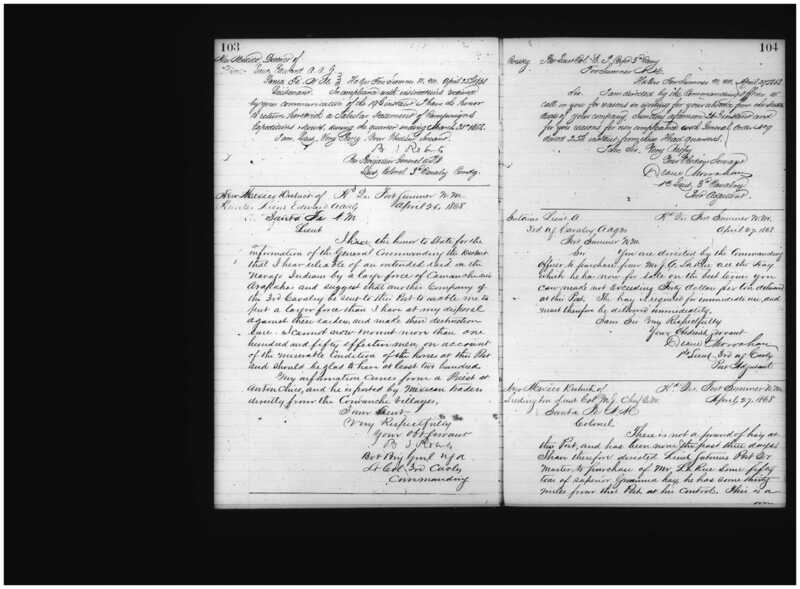 103
New Mexico, District of
Santa Fe, N. M. Hd Qrs Fort Sumner N. M. April 25th 1868
Lieutenant. In compliance with instructions received
by your communication of the 19th instant I have the honor
to return herewith a Tabular Statement of Campaigns
Expeditions &c, during the quarter ending March 31st 1868.
I am Lieut, Very Resp'y Your Obedient Servant.
B. S. Roberts
Bvt Brigadier General U.S.A.
Lieut. Colonel 3d Cavalry Comdg.
New Mexico District of Hd Qrs Fort Sumner N.M.
Lieut Edward April 26, 1868
Santa Fe N.M.
Lieut
I have the honor to State for the
information of the General Commanding the District
that I hear of an intended raid on the
Navajo Indians by a large force of Comanches
Arapahas and suggest that another Company of
the 3rd Cavalry be sent to this Post to enable me to
put a larger force than I have at my disposal
against these raiders and make their destruction
sure. I cannot now mount more than one
hundred and fifty effective men, on account
of the miserable Condition of the horses at this Post
and should be glad to have at least two hundred
My information comes from a Priest at
Anton Chico, and he is posted by Mexican traders
directly from the Comanche Villages,
I am Lieut
Very Respectfully
Your Obt Servant
B S Roberts
Bvt Brig Genl U S A
Lt Col 3rd Cavly
Commanding
104
Comdg 3d Cavy
Fort Sumner N.M.
Hd Qrs Fort Sumner N. M. April 27th 1868
Sir. I am directed by the Commanding Officer to
call on you for reasons in writing for your absence from
of your company, Sunday afternoon 26th instant and
for your reasons for non compliance with General Orders No
25th instant from these Head quarters.
I am, Sir, Very Resp'y
Your Obedient Servant
Deane Monahan
1st Lieut. 3d Cavalry
Post Adjutant.
Lieut. A. Hd Qrs Fort Sumner N.M.
3rd U.S. Cavalry A.A.Q.M. April 27, 1868
Fort Sumner N.M.
Sir You are directed by the Commanding
Officer to purchase from Mr. J. A. La Rue all the Hay
which he has now for sale on the best terms you
can make not exceeding Fifty dollars per ton delivered
at this Post. The hay is required for immediate use, and
must therefore be delivered immediately.
I am Sir Very Respectfully
Your Obedient Servant
Deane Monahan
1st Lieut, 3rd U.S. Cavly
Post Adjutant
New Mexico District of Hd Qrs Fort Sumner N.M.
Ludington Lieut Col. M.I. Chief Q.M. April, 27, 1868
Santa Fe N.M.
Colonel
There is not a pound of hay at
this Post, and has been none the past three days
I have therefore directed Lieut Post Qr
Master to purchase of Mr. La Rue some fifty
tons of superior Gramma hay, he has some thirty
miles from this Post at his control. This is a